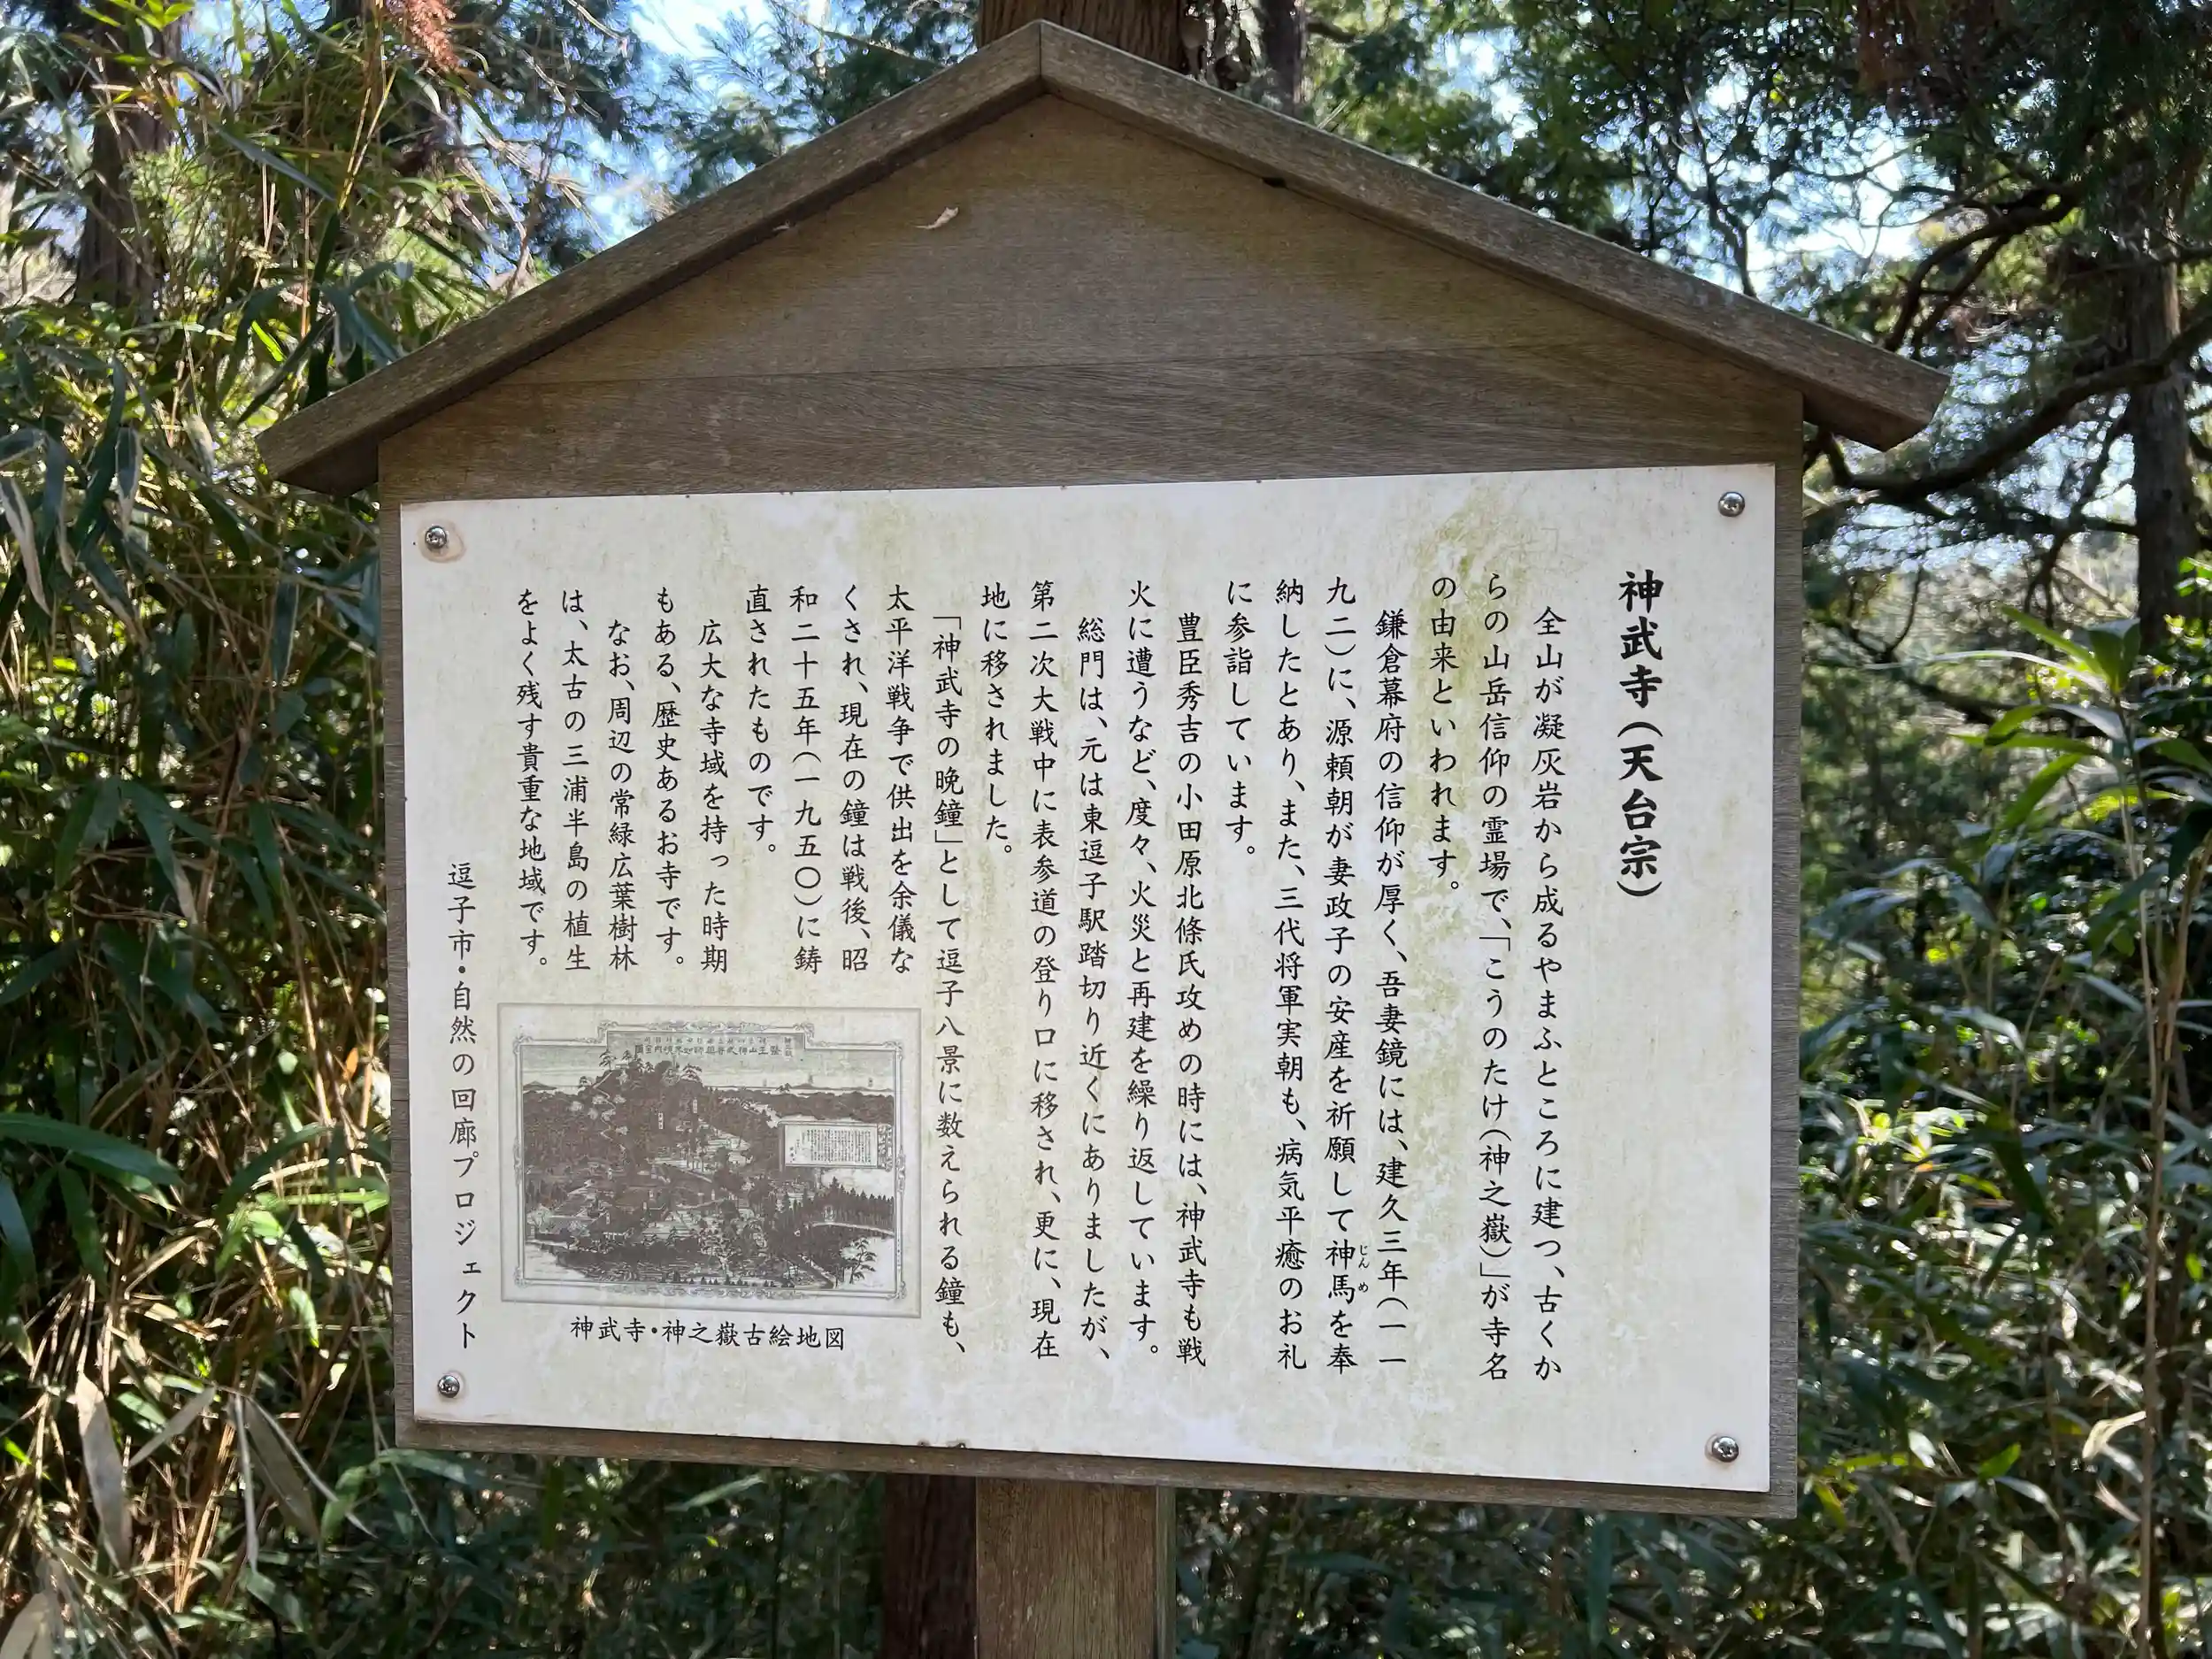 神武寺（天台宗）
全山が凝灰岩から成るやまふところに建つ、古くか
らの山岳信仰の霊場で、「こうのたけ（神之嶽）」が寺名
の由来といわれます。
鎌倉幕府の信仰が厚く、吾妻鏡には、建久三年（一一
九二）に、源頼朝が妻政子の安産を祈願して神馬を奉
じんめ
納したとあり、また、三代将軍実朝も、病気平癒のお礼
に参詣しています。
豊臣秀吉の小田原北條氏攻めの時には、神武寺も戦
火に遭うなど、度々、火災と再建を繰り返しています。
総門は、元は東逗子駅踏切り近くにありましたが、
第二次大戦中に表参道の登り口に移され、更に、現在
地に移されました。
「神武寺の晩鐘」として逗子八景に数えられる鐘も、
太平洋戦争で供出を余儀な
くされ、現在の鐘は戦後、昭
和二十五年（一九五〇）に鋳
直されたものです。
広大な寺域を持った時期
もある、歴史あるお寺です。
なお、周辺の常緑広葉樹林
は、太古の三浦半島の植生
をよく残す貴重な地域です。
神武寺・神之嶽古絵地図
逗子市・自然の回廊プロジェクト